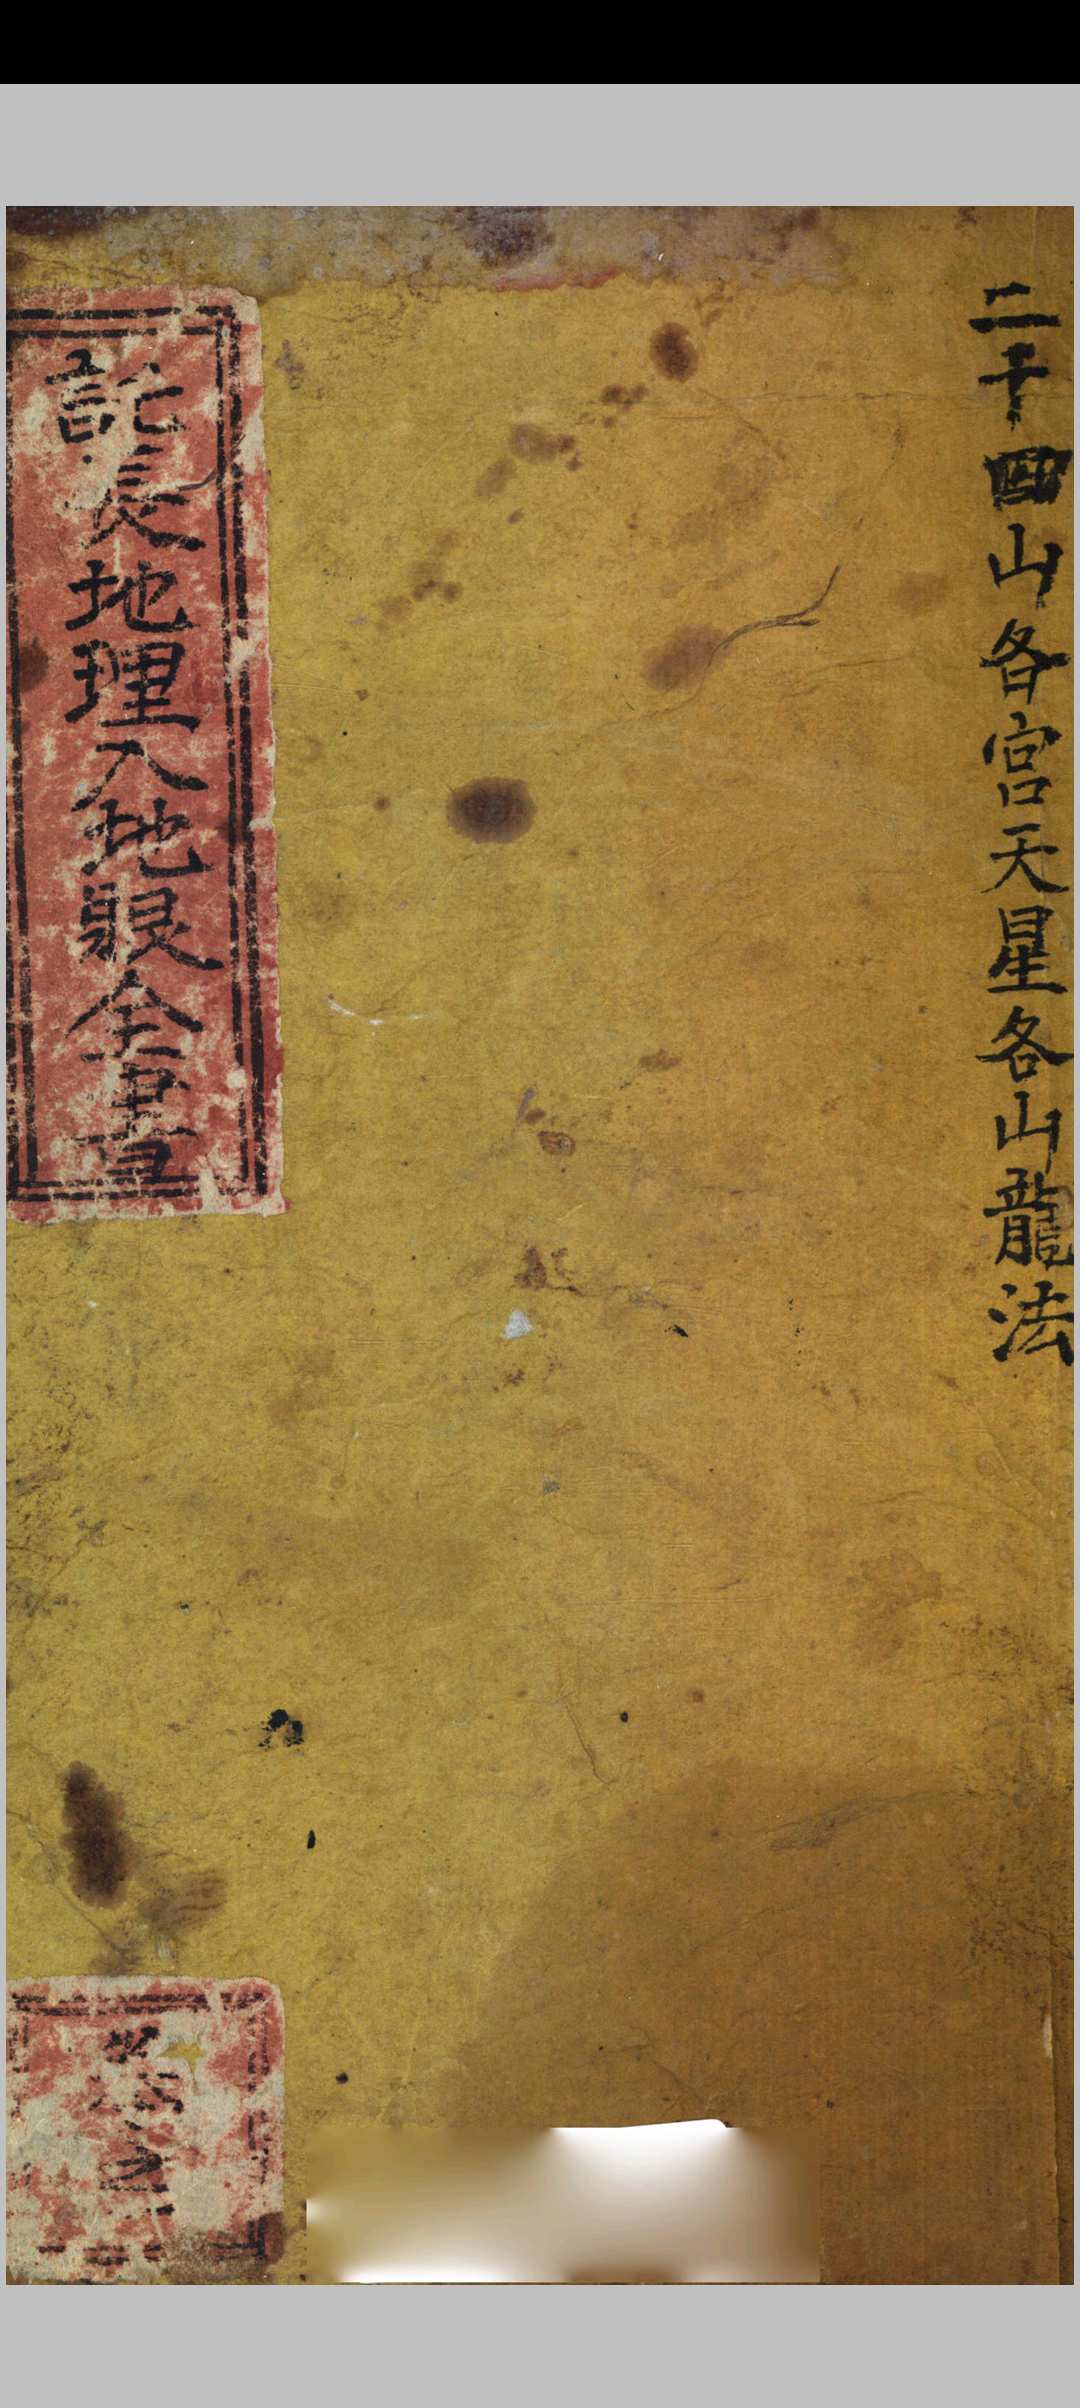 二十四山各宮天星各山龍法
託長地理入地眼全書